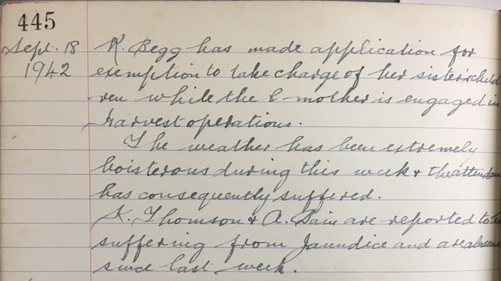 445
Sept. 18 K. Begg has made application for
1942 exemption to take charge of her sister's child
ren while the mother is engaged in
harvest operations.
The weather has been extremely
boisterous during this week & the attendan
has consequently suffered.
K. Thomson & A. Bain are reported to
suffering from Jaundice and are absent
since last week.